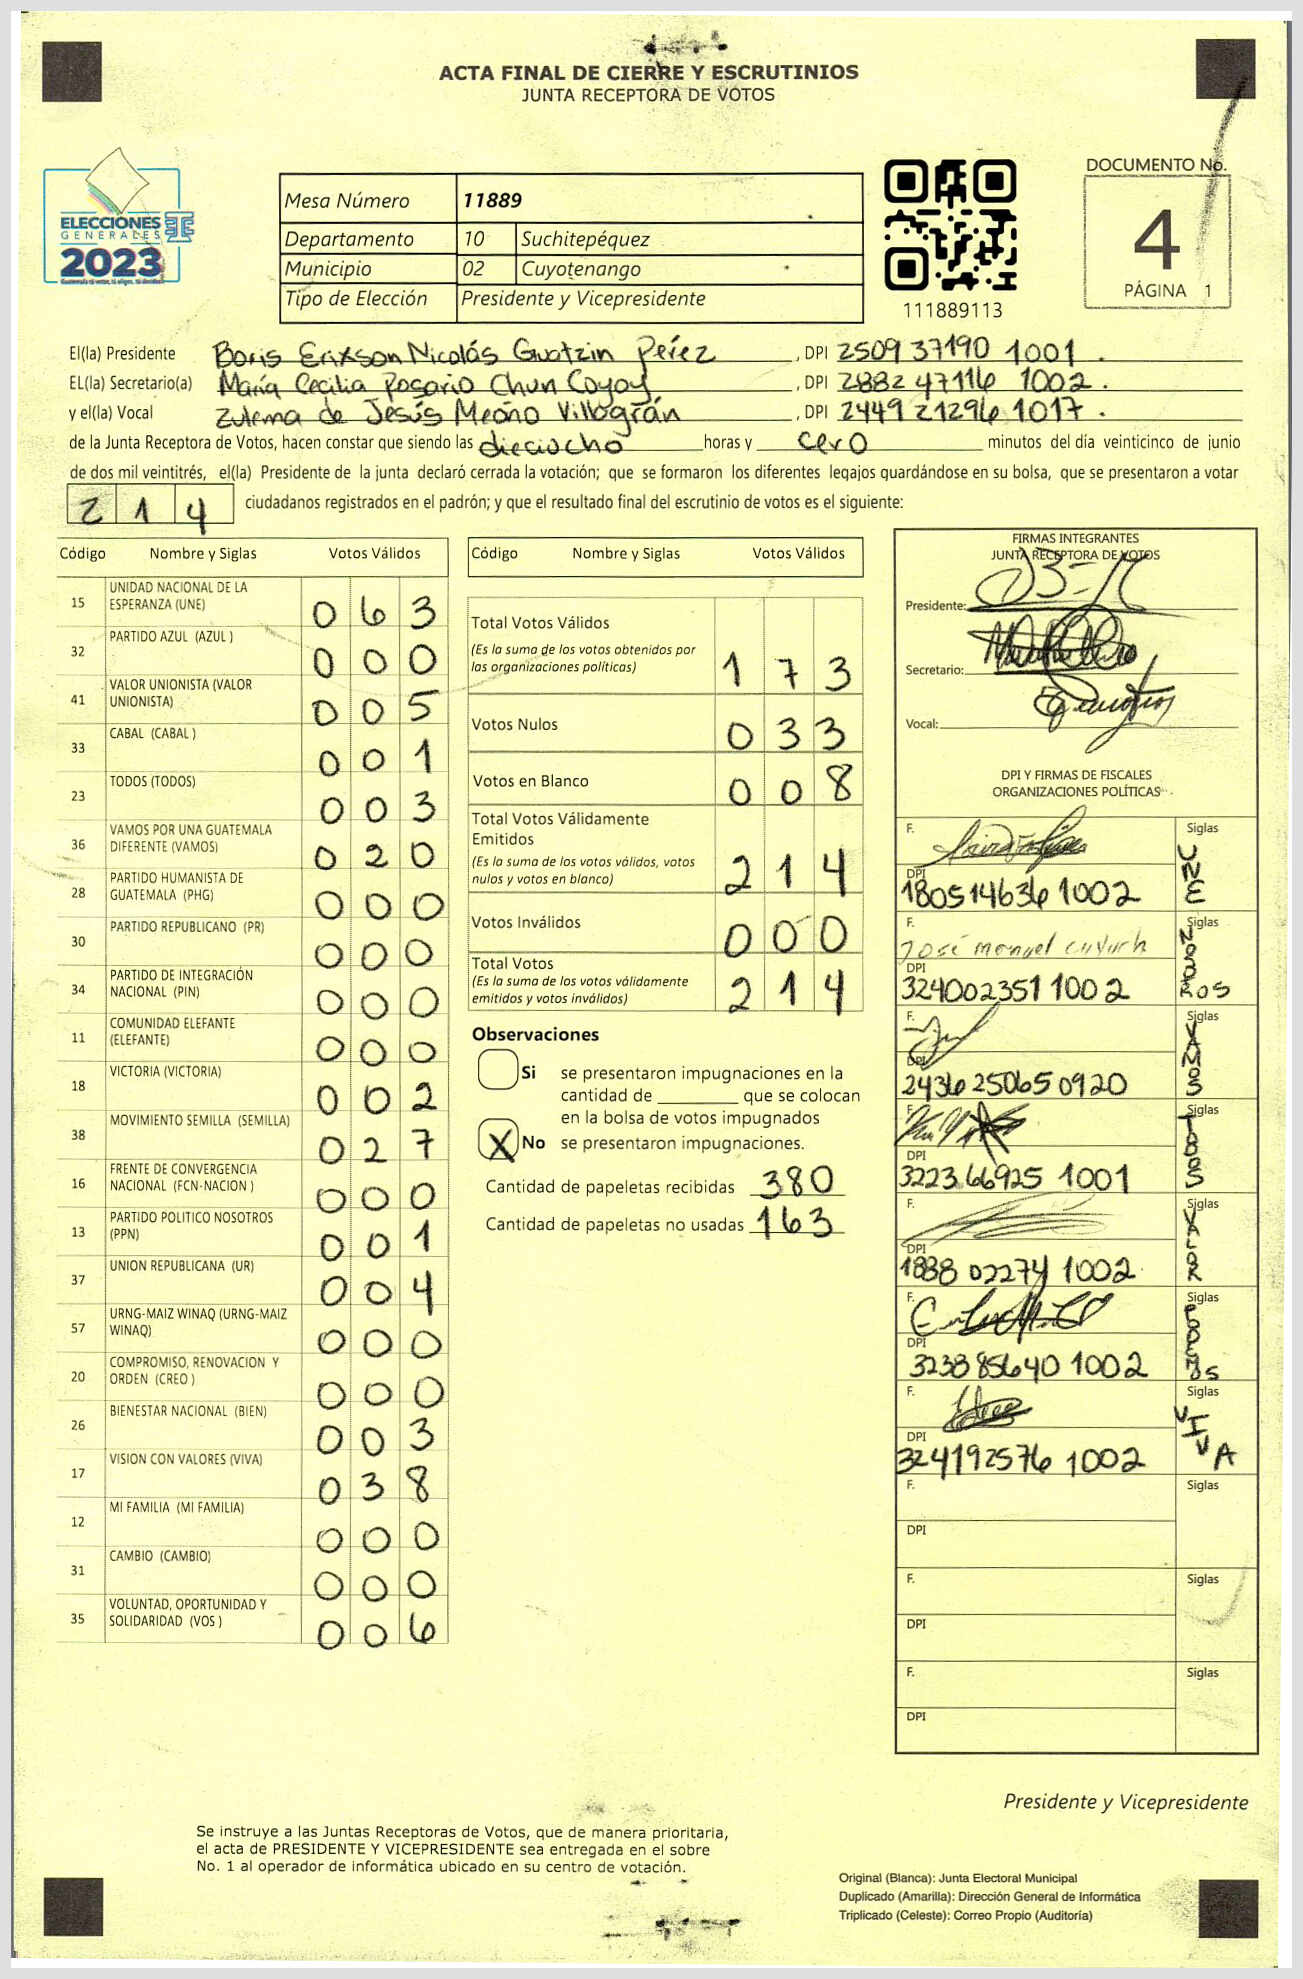 ACTA FINAL DE CIERRE Y ESCRUTINIOS
JUNTA RECEPTORA DE VOTOS
ELECCIONES
GENERALES
2023
Mesa Número 11889
Departamento 10 Suchitepéquez
Municipio 02 Cuyotenango
Tipo de Elección Presidente y Vicepresidente
111889113
DOCUMENTO No.
4
PÁGINA 1
El(la) Presidente Boris Erixson Nicolás Guatzin Pérez, DPI 2509 37190 1001.
EL(la) Secretario(a) María Cecilia Rosario Chun Coyoy, DPI 2882 47116 1002.
y el(la) Vocal Zulema de Jesús Meoño Villográn, DPI 2449 21296 1017.
de la Junta Receptora de Votos, hacen constar que siendo las dieciocho horas y cero minutos del día veinticinco de junio
de dos mil veintitrés, el(la) Presidente de la junta declaró cerrada la votación; que se formaron los diferentes legajos guardándose en su bolsa, que se presentaron a votar
214 ciudadanos registrados en el padrón; y que el resultado final del escrutinio de votos es el siguiente:
Código Nombre y Siglas Votos Válidos
15 UNIDAD NACIONAL DE LA ESPERANZA (UNE) 063
32 PARTIDO AZUL (AZUL ) 000
41 VALOR UNIONISTA (VALOR UNIONISTA) 005
33 CABAL (CABAL ) 001
23 TODOS (TODOS) 003
36 VAMOS POR UNA GUATEMALA DIFERENTE (VAMOS) 020
28 PARTIDO HUMANISTA DE GUATEMALA (PHG) 000
30 PARTIDO REPUBLICANO (PR) 000
34 PARTIDO DE INTEGRACIÓN NACIONAL (PIN) 000
11 COMUNIDAD ELEFANTE (ELEFANTE) 000
18 VICTORIA (VICTORIA) 002
38 MOVIMIENTO SEMILLA (SEMILLA) 027
16 FRENTE DE CONVERGENCIA NACIONAL (FCN-NACION ) 000
13 PARTIDO POLITICO NOSOTROS (PPN) 001
37 UNION REPUBLICANA (UR) 004
57 URNG-MAIZ WINAQ (URNG-MAIZ WINAQ) 000
20 COMPROMISO, RENOVACION Y ORDEN (CREO ) 000
26 BIENESTAR NACIONAL (BIEN) 003
17 VISION CON VALORES (VIVA) 038
12 MI FAMILIA (MI FAMILIA) 000
31 CAMBIO (CAMBIO) 000
35 VOLUNTAD, OPORTUNIDAD Y SOLIDARIDAD (VOS ) 006
Código Nombre y Siglas Votos Válidos
Total Votos Válidos 173
(Es la suma de los votos obtenidos por
las organizaciones políticas)
Votos Nulos 033
Votos en Blanco 008
Total Votos Válidamente
Emitidos 214
(Es la suma de los votos válidos, votos
nulos y votos en blanco)
Votos Inválidos 000
Total Votos 214
(Es la suma de los votos válidamente
emitidos y votos inválidos)
Observaciones
Si se presentaron impugnaciones en la
cantidad de ________ que se colocan
en la bolsa de votos impugnados
X No se presentaron impugnaciones.
Cantidad de papeletas recibidas 380
Cantidad de papeletas no usadas 163
FIRMAS INTEGRANTES
JUNTA RECEPTORA DE VOTOS
Presidente:
Secretario:
Vocal:
DPI Y FIRMAS DE FISCALES
ORGANIZACIONES POLÍTICAS
F. Siglas UNE
DPI 180514636 1002
F. José manuel Siglas
DPI 324002351 1002
F. Siglas VAMOS
DPI 2436 25065 0920
F. Siglas TODOS
DPI 3223 66925 1001
F. Siglas VALOR
DPI 1888 02274 1002
F. Siglas PODEMOS
DPI 3238 85640 1002
F. Siglas VIVA
DPI 324192576 1002
F. Siglas
DPI
F. Siglas
DPI
F. Siglas
DPI
Presidente y Vicepresidente
Se instruye a las Juntas Receptoras de Votos, que de manera prioritaria,
el acta de PRESIDENTE Y VICEPRESIDENTE sea entregada en el sobre
No. 1 al operador de informática ubicado en su centro de votación.
Original (Blanca): Junta Electoral Municipal
Duplicado (Amarilla): Dirección General de Informática
Triplicado (Celeste): Correo Propio (Auditoría)